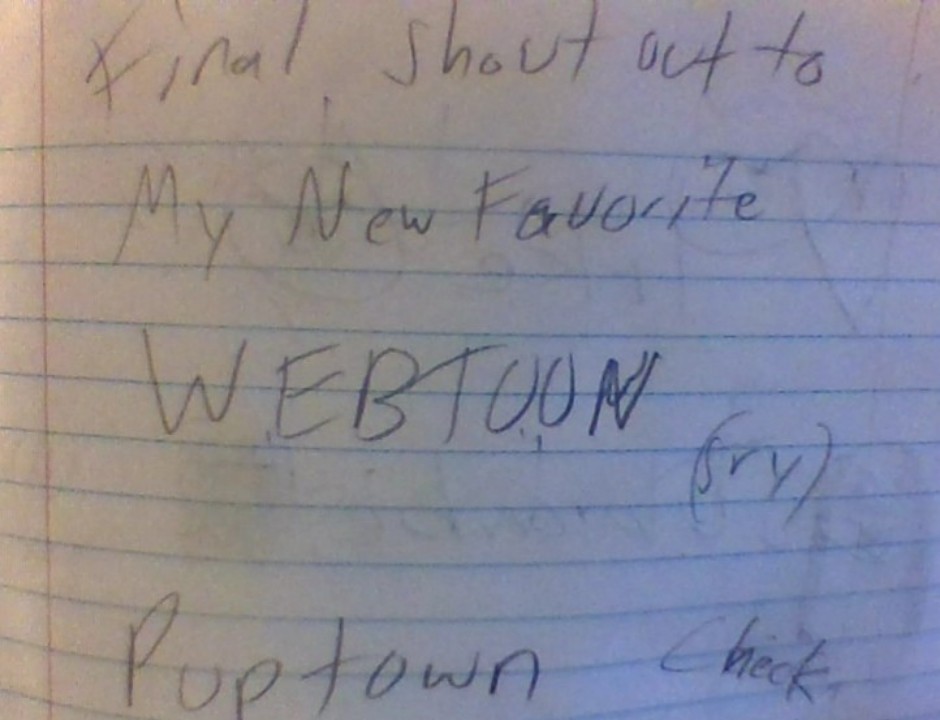 Final shout out to
My New Favorite
WEBTOON
(sry)
Puptown Check